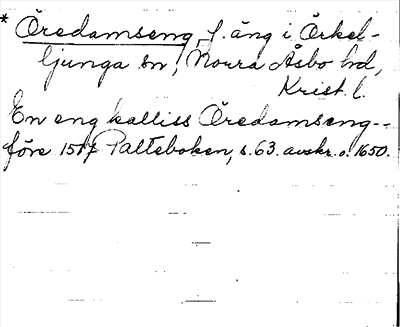 * Öredamseng, f. äng i Örkel-
ljunga sn, Norra Åsbo hd,
Krist. l.
En eng kalliss Öredamseng--
före 1517 Palteboken, s. 63. avskr. o. 1650.